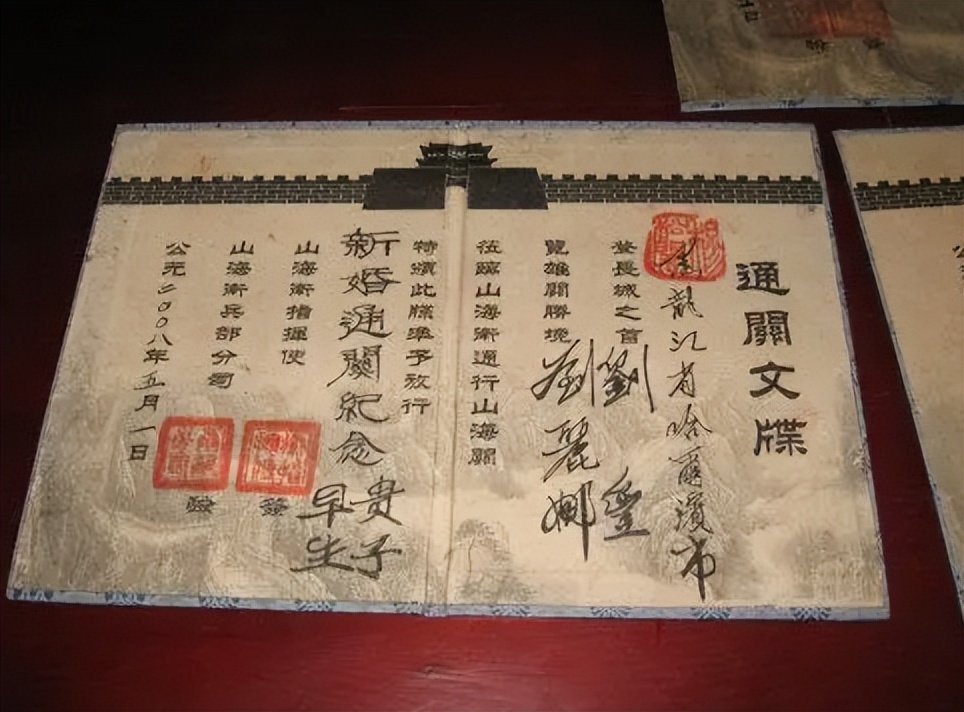 通關文牒
黑龍江省哈爾濱市
登長城之首
劉
覽雄關勝境
劉麗娜
莅臨山海衛通行山海關
特頒此牒準予放行
新婚通關紀念
早生
贵子
山海衛指揮使
發
山海衛兵部分司
驗
公元二〇〇八年五月一日